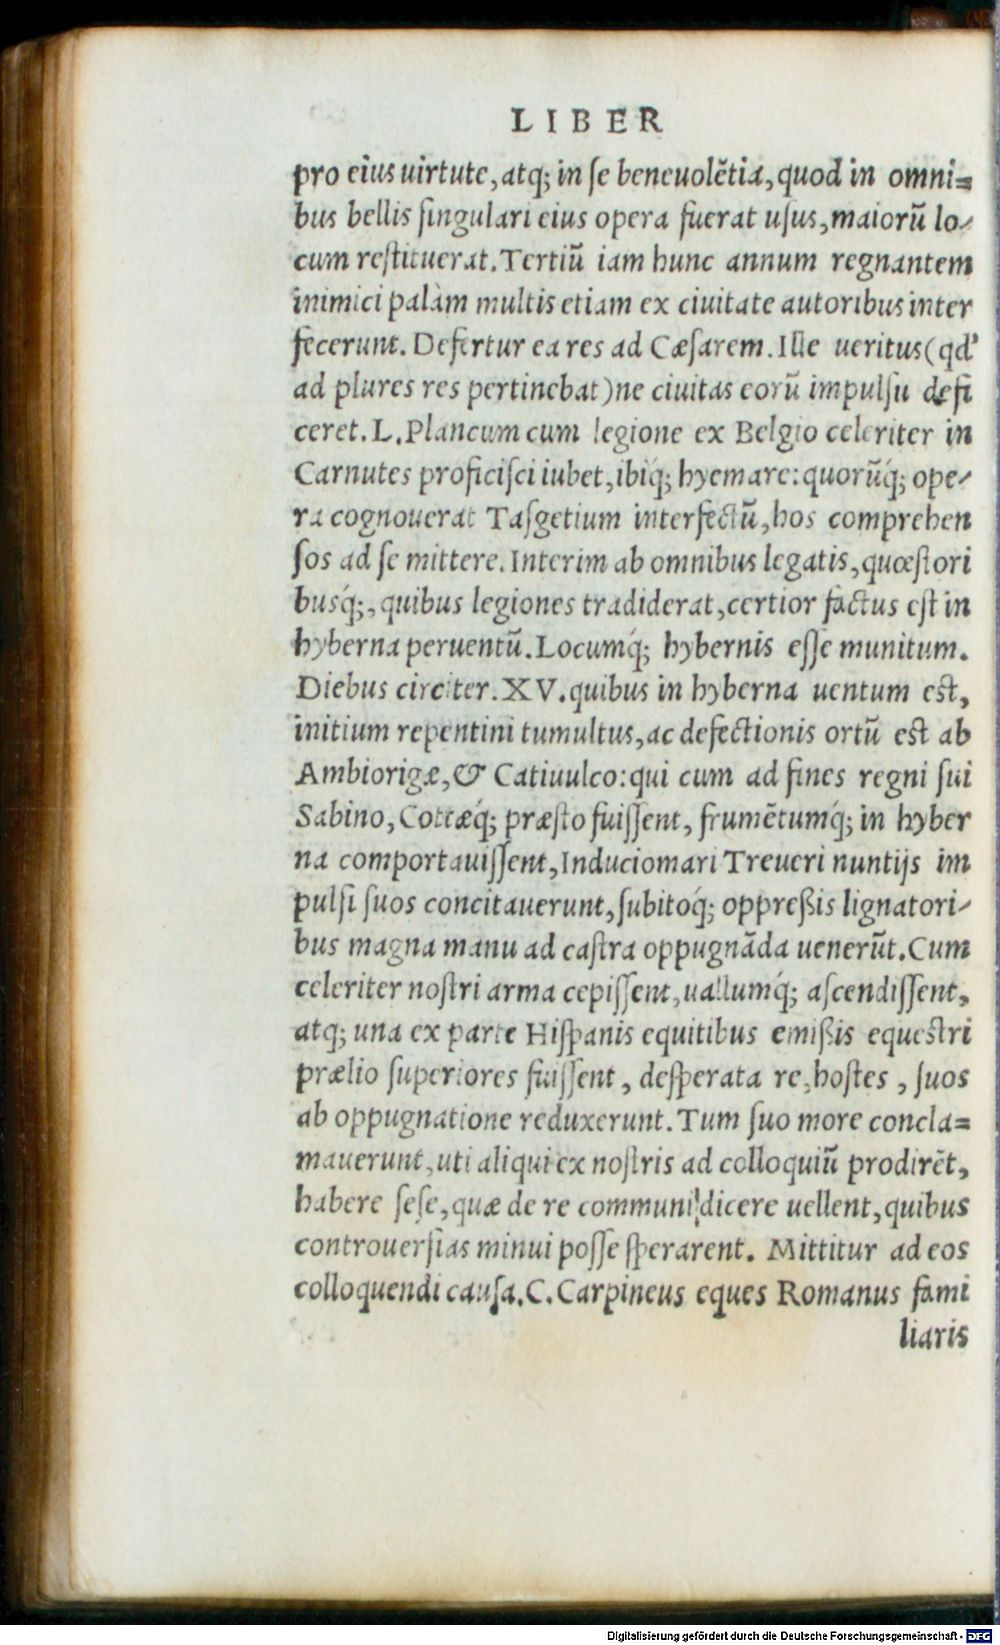 LIBER
pro eius uirtute, atq; in ſe beneuolẽtia, quod in omni=
bus bellis ſingulari eius opera fuerat uſus, maiorũ lo-
cum reſtituerat. Tertiũ iam hunc annum regnantem
inimici palàm multis etiam ex ciuitate autoribus inter
fecerunt. Defertur ea res ad Cæſarem. Ille ueritus (qd'
ad plures res pertinebat) ne ciuitas eorũ impulſu defi
ceret. L. Plancum cum legione ex Belgio celeriter in
Carnutes proficiſci iubet, ibiq́; hyemare: quorũq́; ope-
ra cognouerat Taſgetium interfectũ, hos comprehen
ſos ad ſe mittere. Interim ab omnibus legatis, quæſtori
busq́;, quibus legiones tradiderat, certior factus eſt in
hyberna peruentũ. Locumq́; hybernis eſſe munitum.
Diebus circiter. XV. quibus in hyberna uentum eſt,
initium repentini tumultus, ac defectionis ortũ eſt ab
Ambiorigæ, & Catiuulco: qui cum ad fines regni ſui
Sabino, Cottæq́; præſto fuiſſent, frumẽtumq́; in hyber
na comportauiſſent, Induciomari Treueri nuntijs im
pulſi ſuos concitauerunt, ſubitoq́; oppreßis lignatori-
bus magna manu ad caſtra oppugnãda uenerũt. Cum
celeriter noſtri arma cepiſſent, uallumq́; aſcendiſſent,
atq; una ex parte Hiſpanis equitibus emißis equeſtri
prælio ſuperiores fuiſſent, deſperata re, hoſtes, ſuos
ab oppugnatione reduxerunt. Tum ſuo more concla=
mauerunt, uti aliqui ex noſtris ad colloquiũ prodirẽt,
habere ſeſe, quæ de re communi dicere uellent, quibus
controuerſias minui poſſe ſperarent. Mittitur ad eos
colloquendi cauſa. C. Carpineus eques Romanus fami
liaris
Digitalisierung gefördert durch die Deutsche Forschungsgemeinschaft - DFG